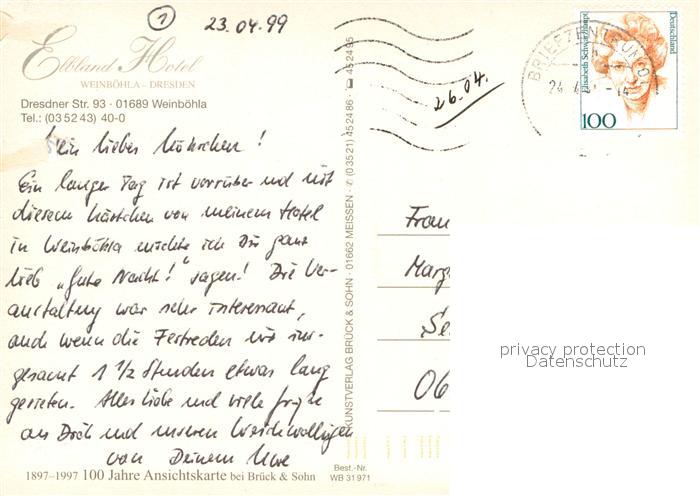 ① 23.04.99
Elbland Hotel
WEINBÖHLA – DRESDEN
Dresdner Str. 93 · 01689 Weinböhla
Tel.: (0 35 2 43) 40-0
Mein liebes !
Ein langer Tag ist vorrüber und mit
diesem Kärtchen von meinem Hotel
in Weinböhla möchte ich Dir ganz
lieb „Gute Nacht!" sagen! Die Ver-
anstaltung war sehr interessant,
auch wenn die Festreden mit ins-
gesamt 1 1/2 Stunden etwas lang
gerieten. Alles Liebe und viele Grüße
an Dich und unseren
von Deinem Uwe
1897–1997 100 Jahre Ansichtskarte bei Brück & Sohn
KUNSTVERLAG BRÜCK & SOHN · 01662 MEISSEN · ✆ (0 35 21) 45 24 86 · 45 24 95
Best.-Nr.
WB 31 971
26.04.
BRIEFZENTRUM
24.4. -14
Elisabeth Schwarzhaupt
Deutschland
100
Frau
Marg
Se
06
privacy protection
Datenschutz